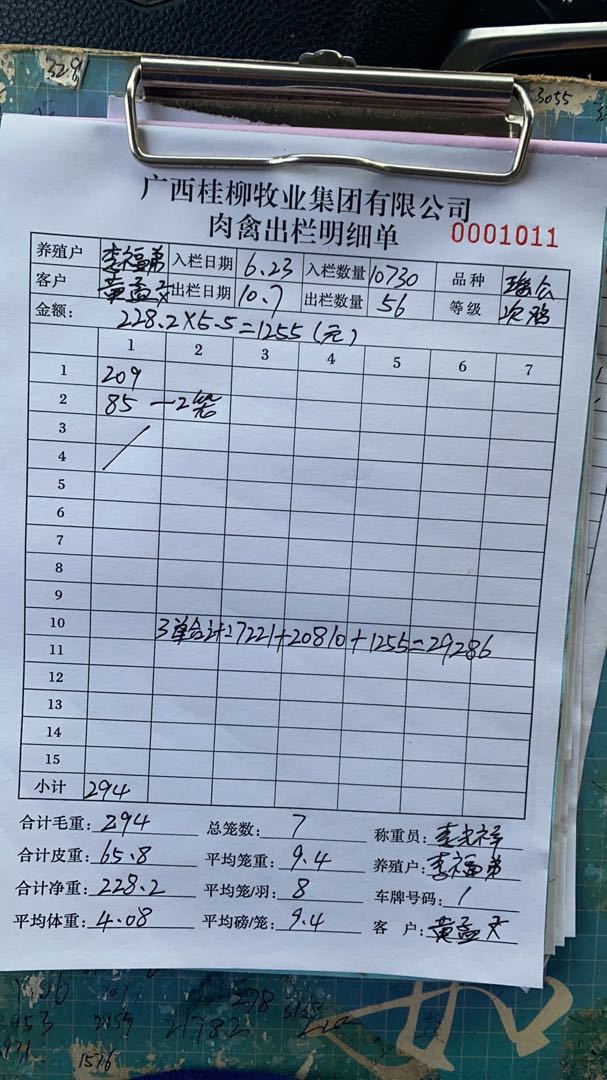 32.8
3055
广西桂柳牧业集团有限公司
肉禽出栏明细单 0001011
养殖户 李福弟 入栏日期 6.23 入栏数量 10730 品种
客户 黄孟文 出栏日期 10.7 出栏数量 56 等级 次鸡
金额: 228.2×5.5=1255(元)
1 2 3 4 5 6 7
1 209
2 85 —2笼
3
4
5
6
7
8
9
10
3单合计27221+20810+1255=29286
11
12
13
14
15
小计 294
合计毛重: 294 总笼数: 7 称重员: 李光祥
合计皮重: 65.8 平均笼重: 9.4 养殖户: 李福弟
合计净重: 228.2 平均笼/羽: 8 车牌号码: /
平均体重: 4.08 平均磅/笼: 9.4 客 户: 黄孟文
278
953 21982
1576